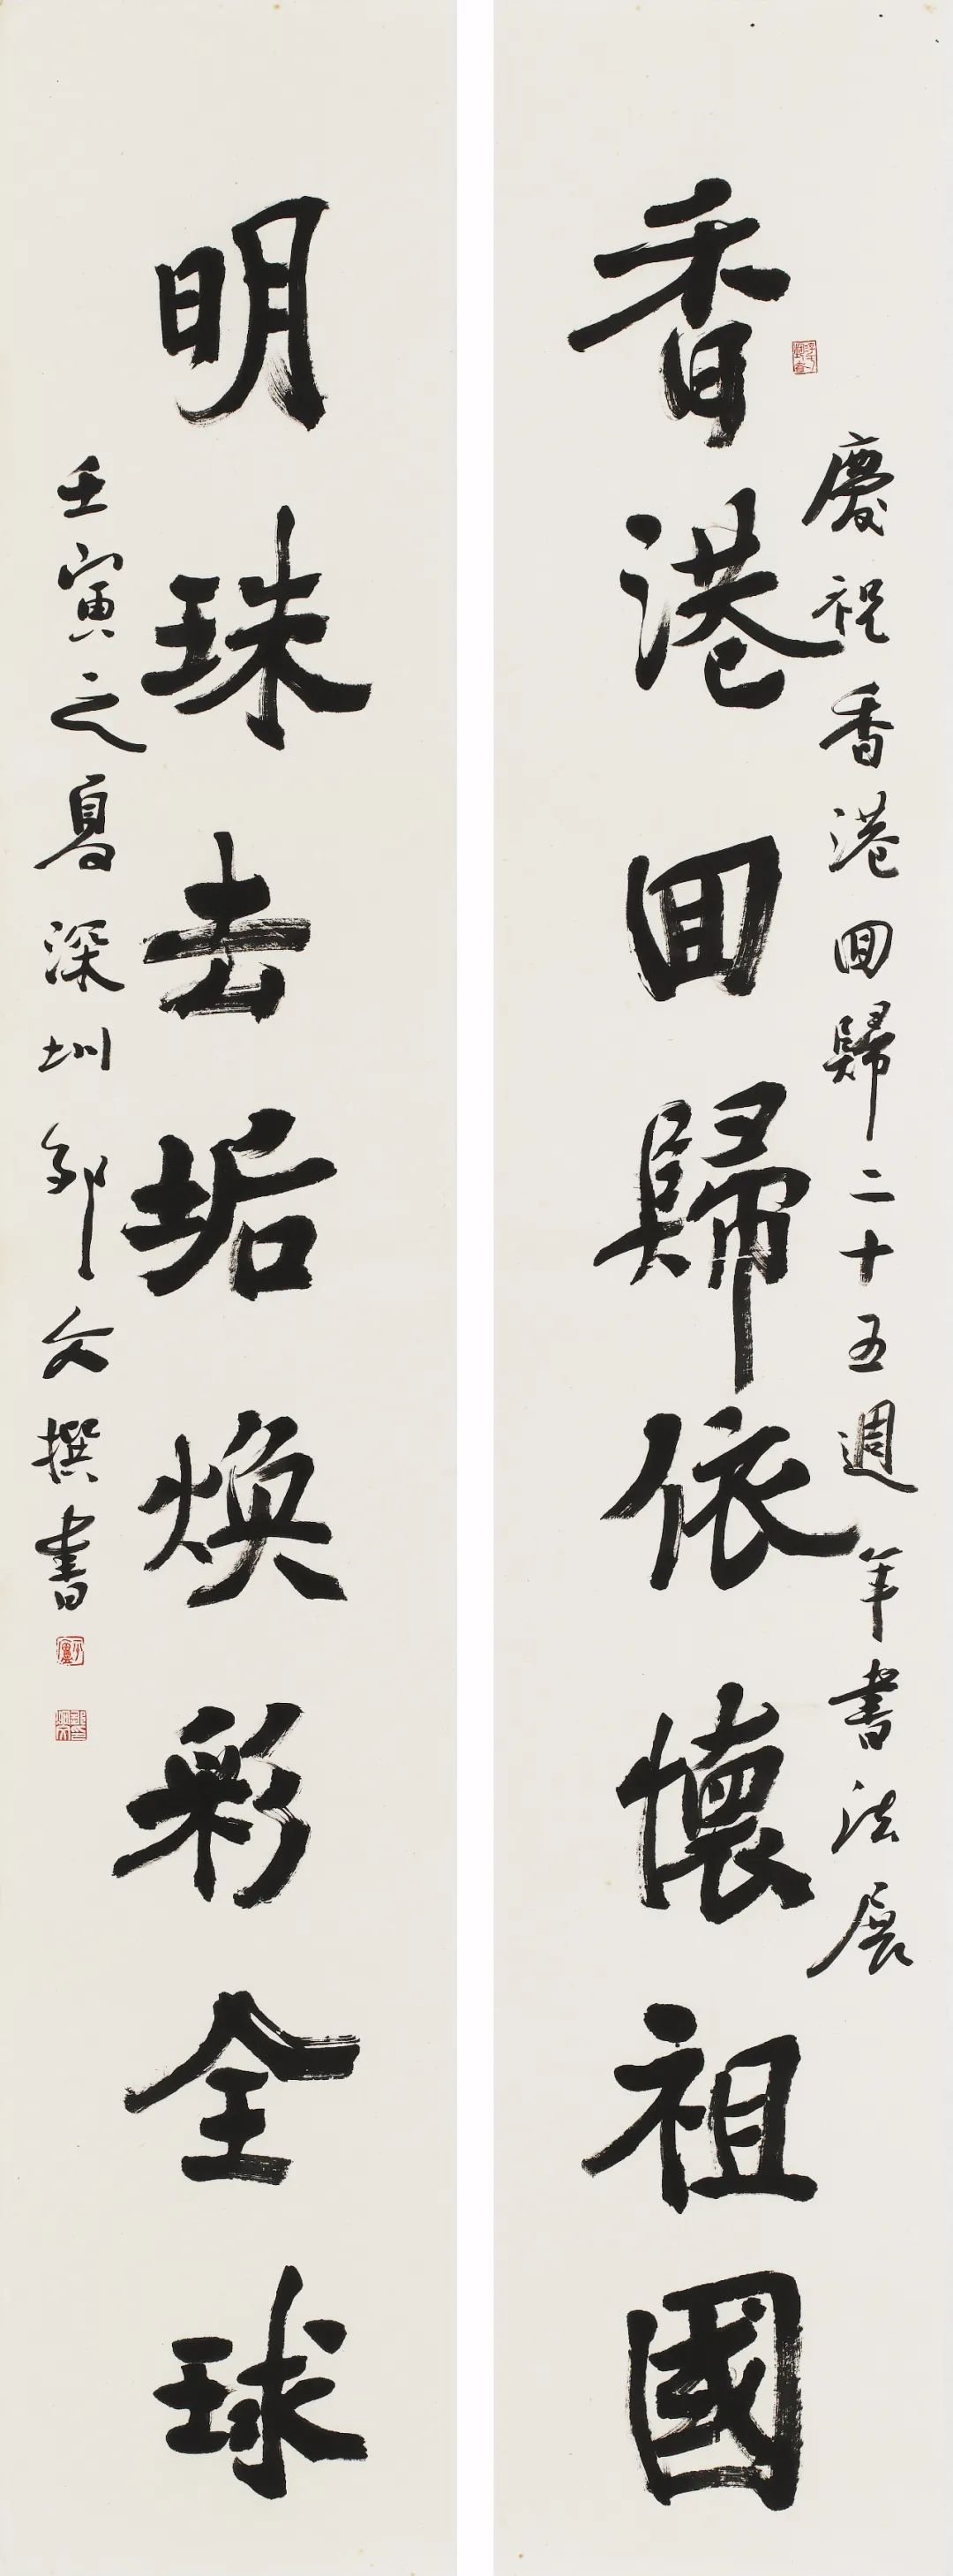 慶祝香港回歸二十五週年書法展
香港回歸依懷祖國
明珠去垢煥彩全球
壬寅之夏深圳鄒文撰書